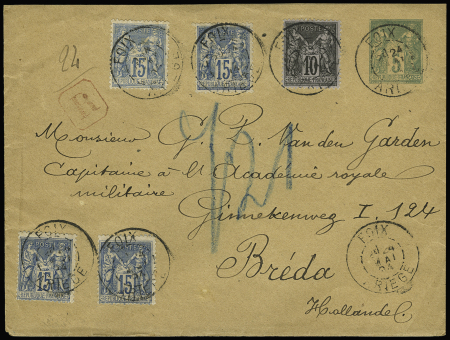 15 15 10 5
FOIX FOIX FOIX FOIX
24
R
Monsieur G. R. Van den Garden
Capitaine à l'Académie royale
militaire
Ginnekenweg I. 124
Bréda
Hollande.
721
FOIX FOIX
15 15
FOIX
ARIÈGE